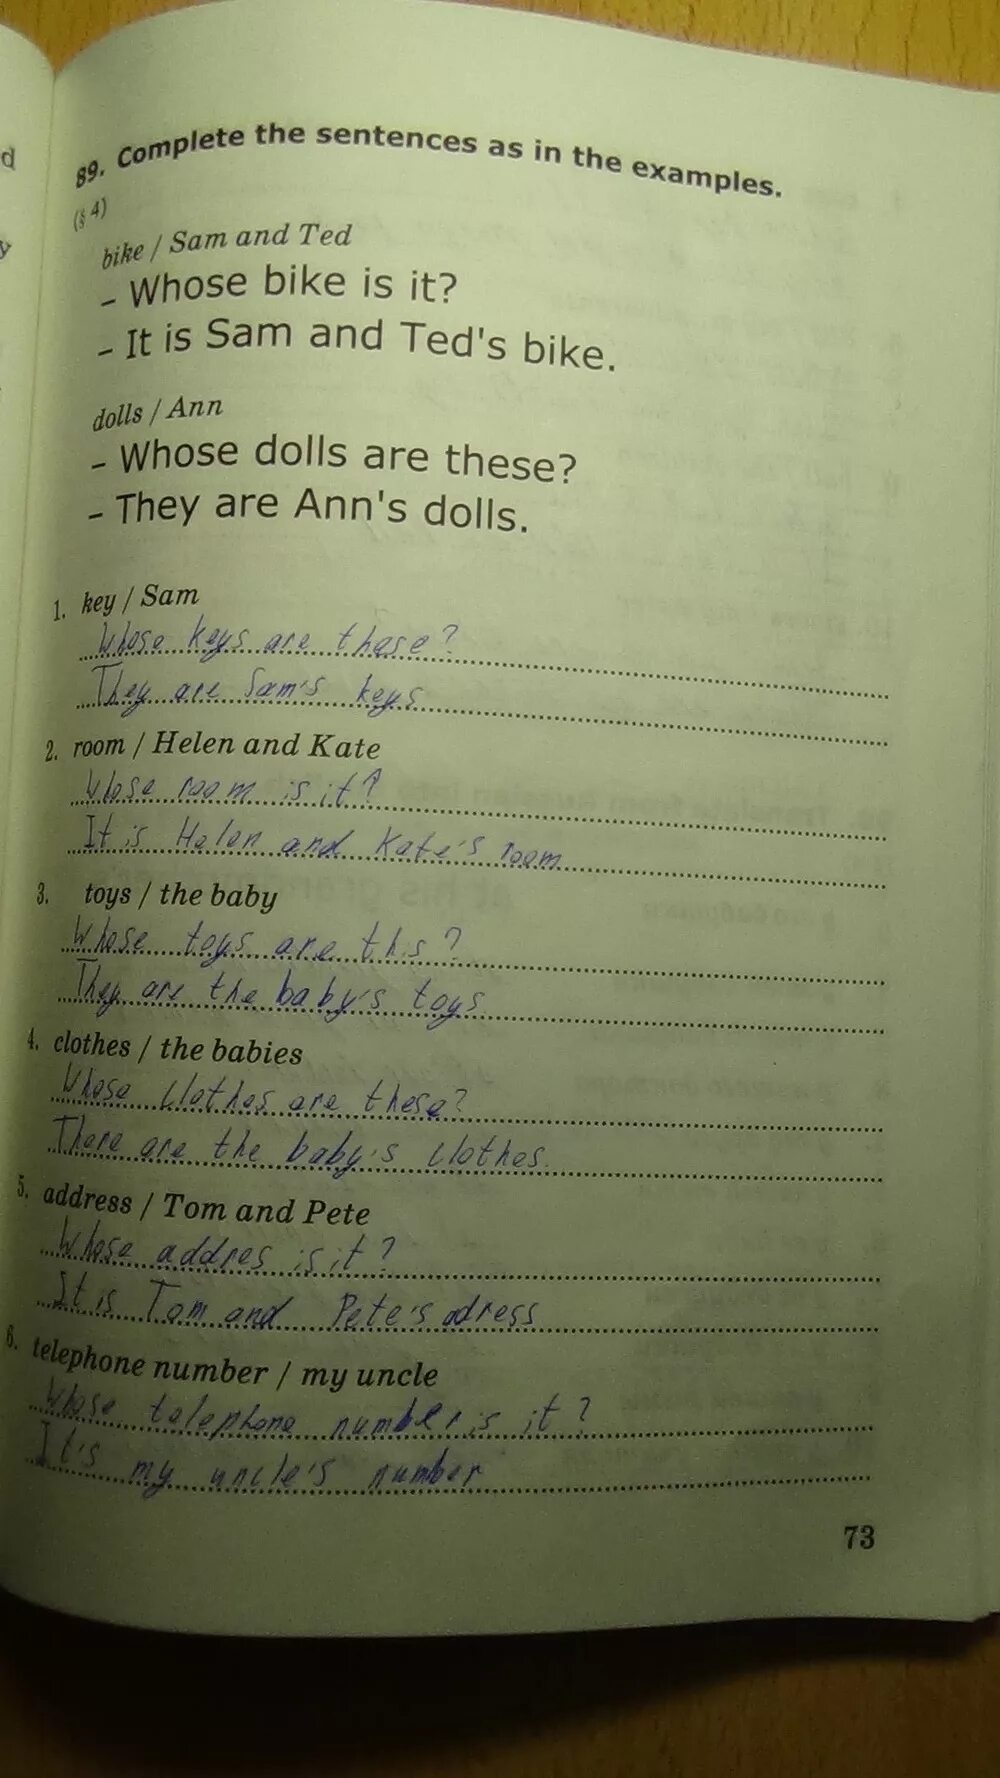 d
y
89. Complete the sentences as in the examples.
(§ 4)
bike / Sam and Ted
– Whose bike is it?
– It is Sam and Ted's bike.
dolls / Ann
– Whose dolls are these?
– They are Ann's dolls.
1. key / Sam
Whose keys are those?
They are Sam's keys
2. room / Helen and Kate
Whose room is it?
It is Helen and Kate's room
3. toys / the baby
Whose toys are this?
They are the baby's toys
4. clothes / the babies
Whose clothes are these?
There are the baby's clothes.
5. address / Tom and Pete
Whose addres is it?
It is Tom and Pete's adress
6. telephone number / my uncle
Whose telephone number is it?
It's my uncle's number
73